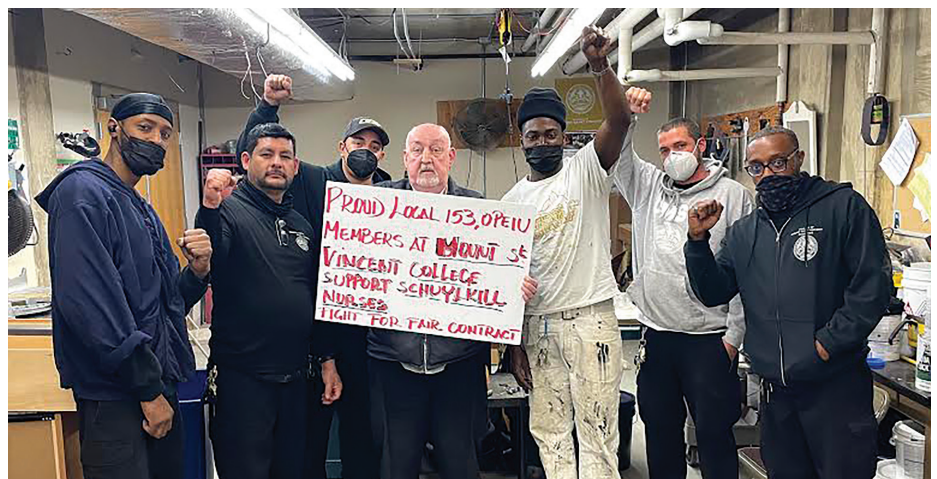 PROUD LOCAL 153, OPEIU
MEMBERS AT MOUNT St
VINCENT COLLEGE
SUPPORT SCHUYLKILL
NURSES
FIGHT FOR FAIR CONTRACT